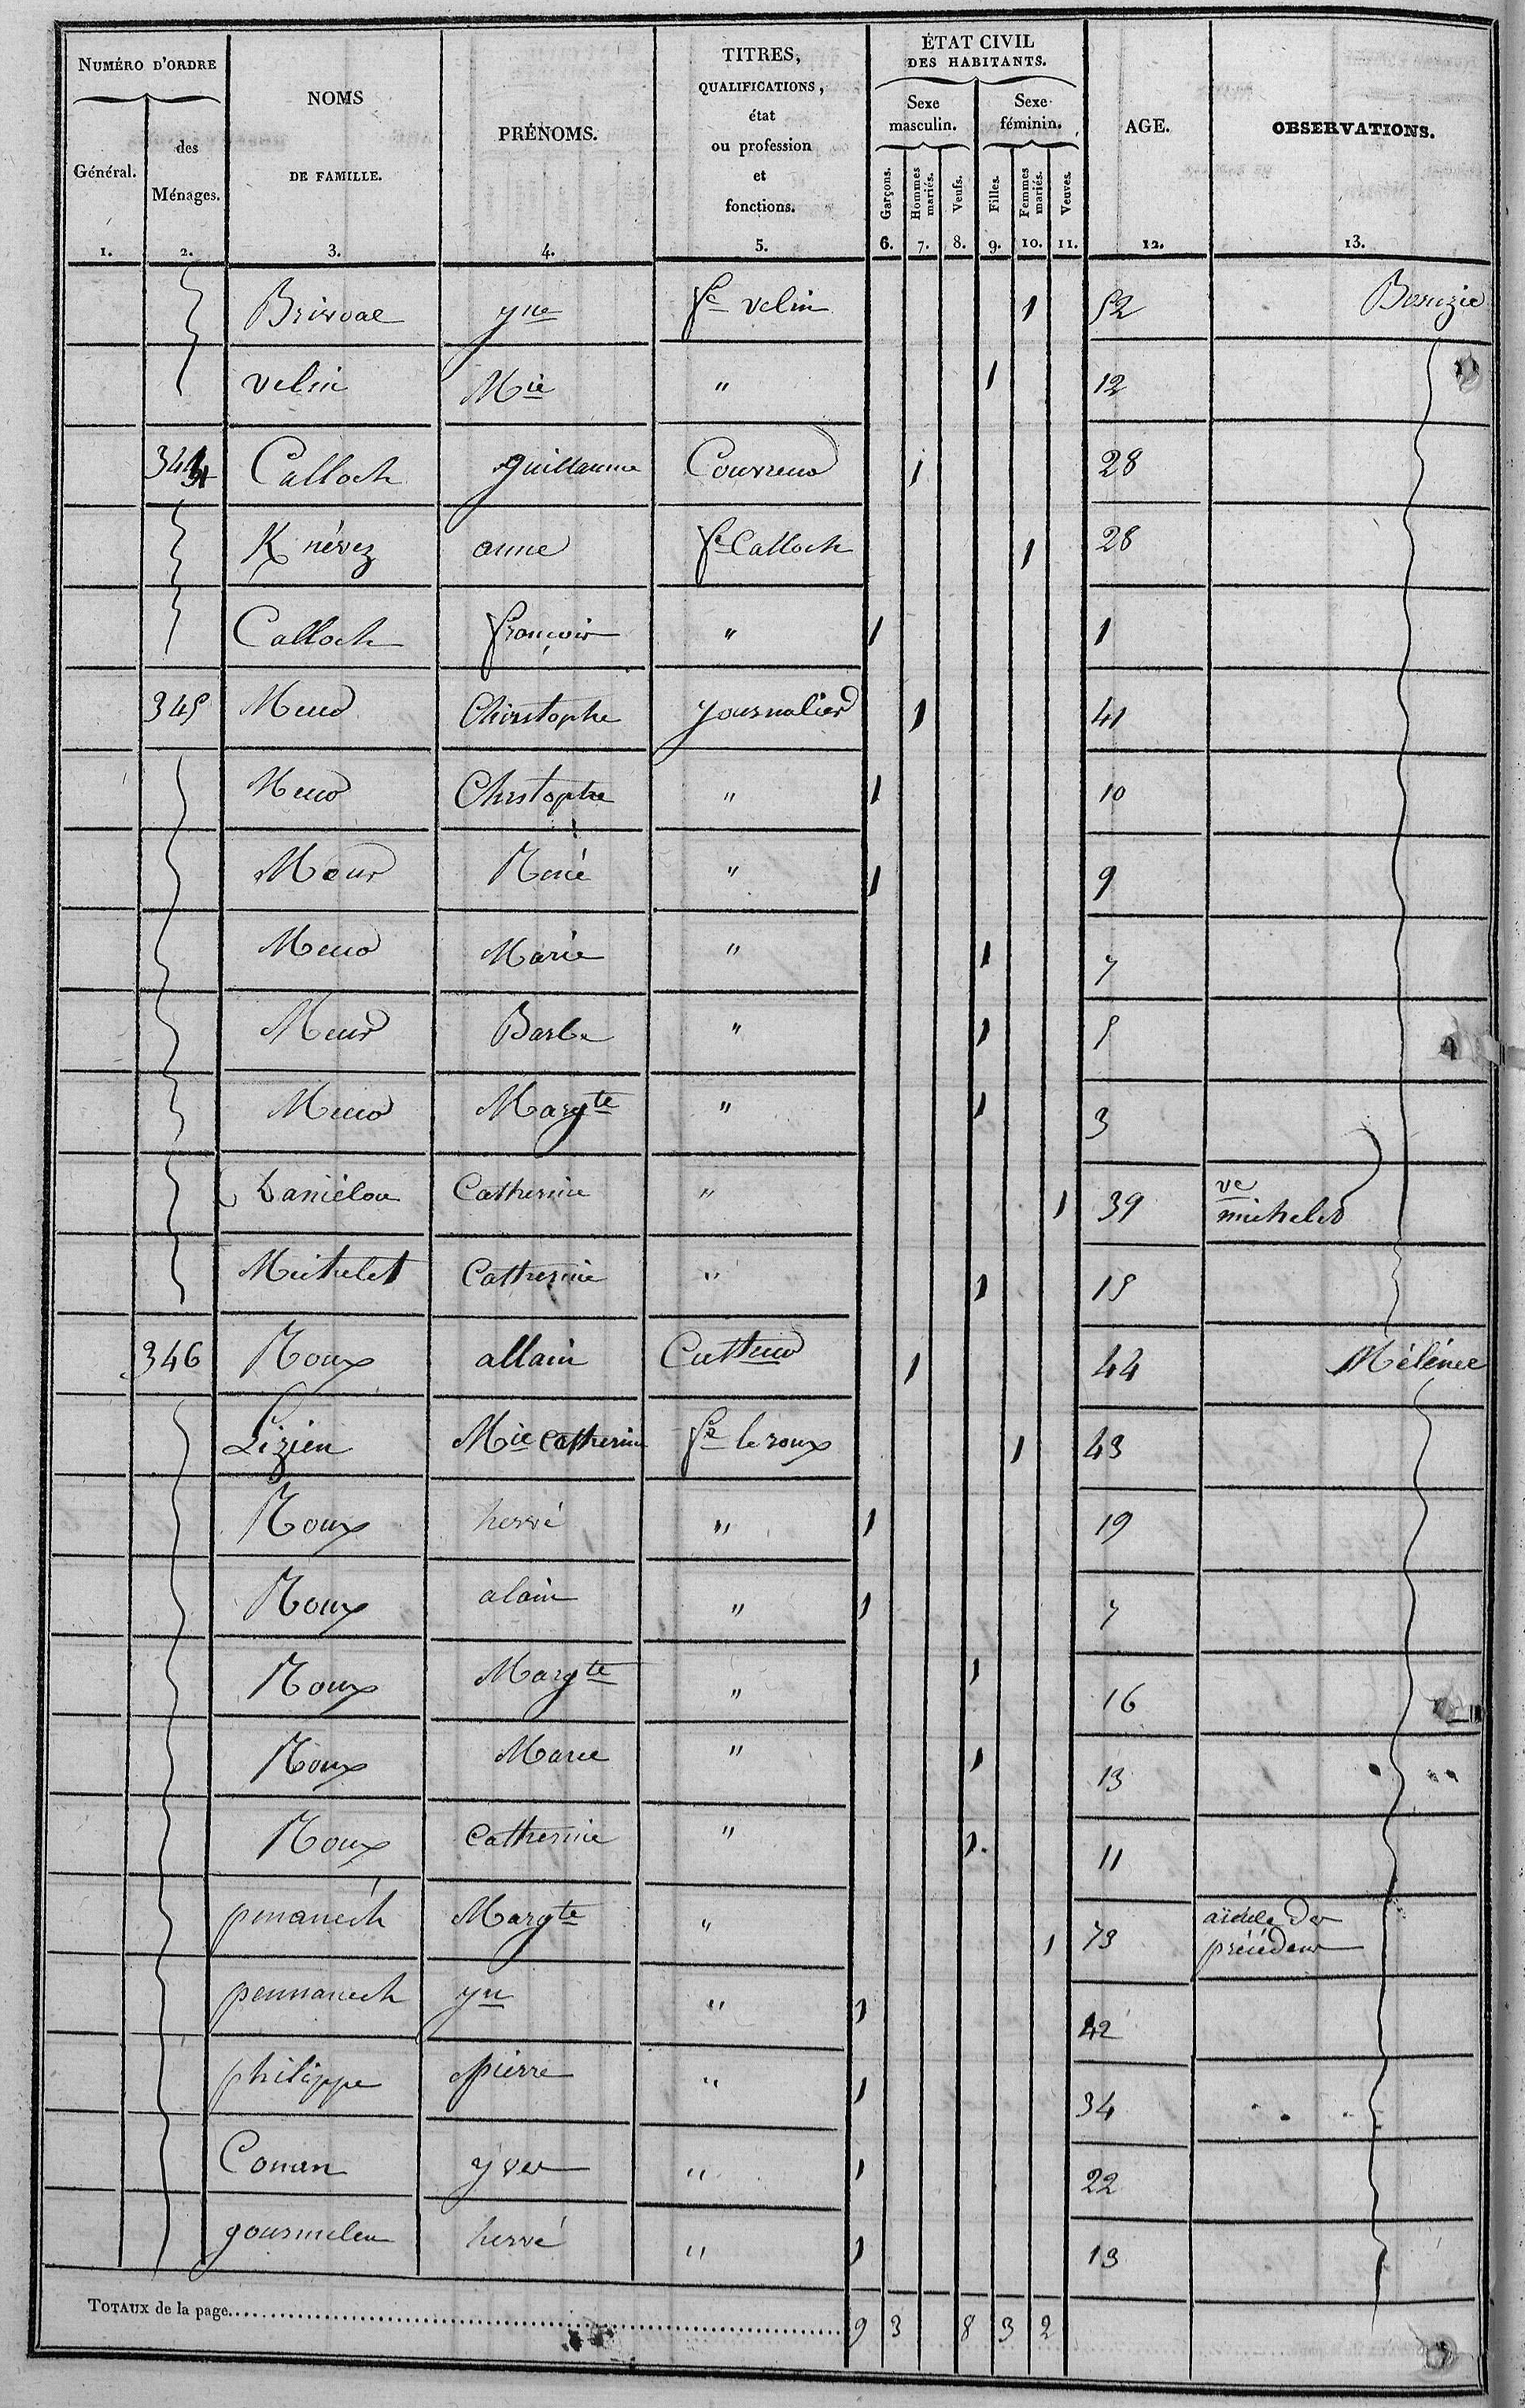 NUMÉRO D'ORDRE
Général.
des
Ménages.
NOMS
DE FAMILLE.
PRÉNOMS.
TITRES,
QUALIFICATIONS,
état
ou profession
et
fonctions.
ÉTAT CIVIL
DES HABITANTS.
Sexe
masculin.
Sexe
féminin.
Garçons.
Hommes
mariés.
Veufs.
Filles.
Femmes
mariés.
Veuves.
AGE.
OBSERVATIONS.
1. 2. 3. 4. 5. 6. 7. 8. 9. 10. 11. 12. 13.
yne fe velin 1 52
velin Mie " 1 12
344 Calloch guillaume Couvreur 1 28
K névez anne fe Calloch 1 28
Calloch françois " 1 1
345 Meur Christophe journalier 1 41
Meur Christophe " 1 10
Meur René " 1 9
Meur Marie " 1 7
Meur Barbe " 1 5
Meur Margte " 1 3
Daniélou Catherine " 1 39 ve
michelet
Michelet Catherine " 1 15
346 Roux allain Cultteur 1 44 Mélénec
Lizien Mie Catherine fe le roux 1 43
Roux hervé " 1 19
Roux alain " 1 7
Roux Margte " 1 16
Roux Marie " 1 13
Roux Catherine " 1 11
penanech Margte " 1 73 aieule des
précédens
pennanech yn " 1 42
philippe pierre " 1 34
Conan yves " 1 22
gourmelen hervé " 1 13
TOTAUX de la page 9 3 8 3 2